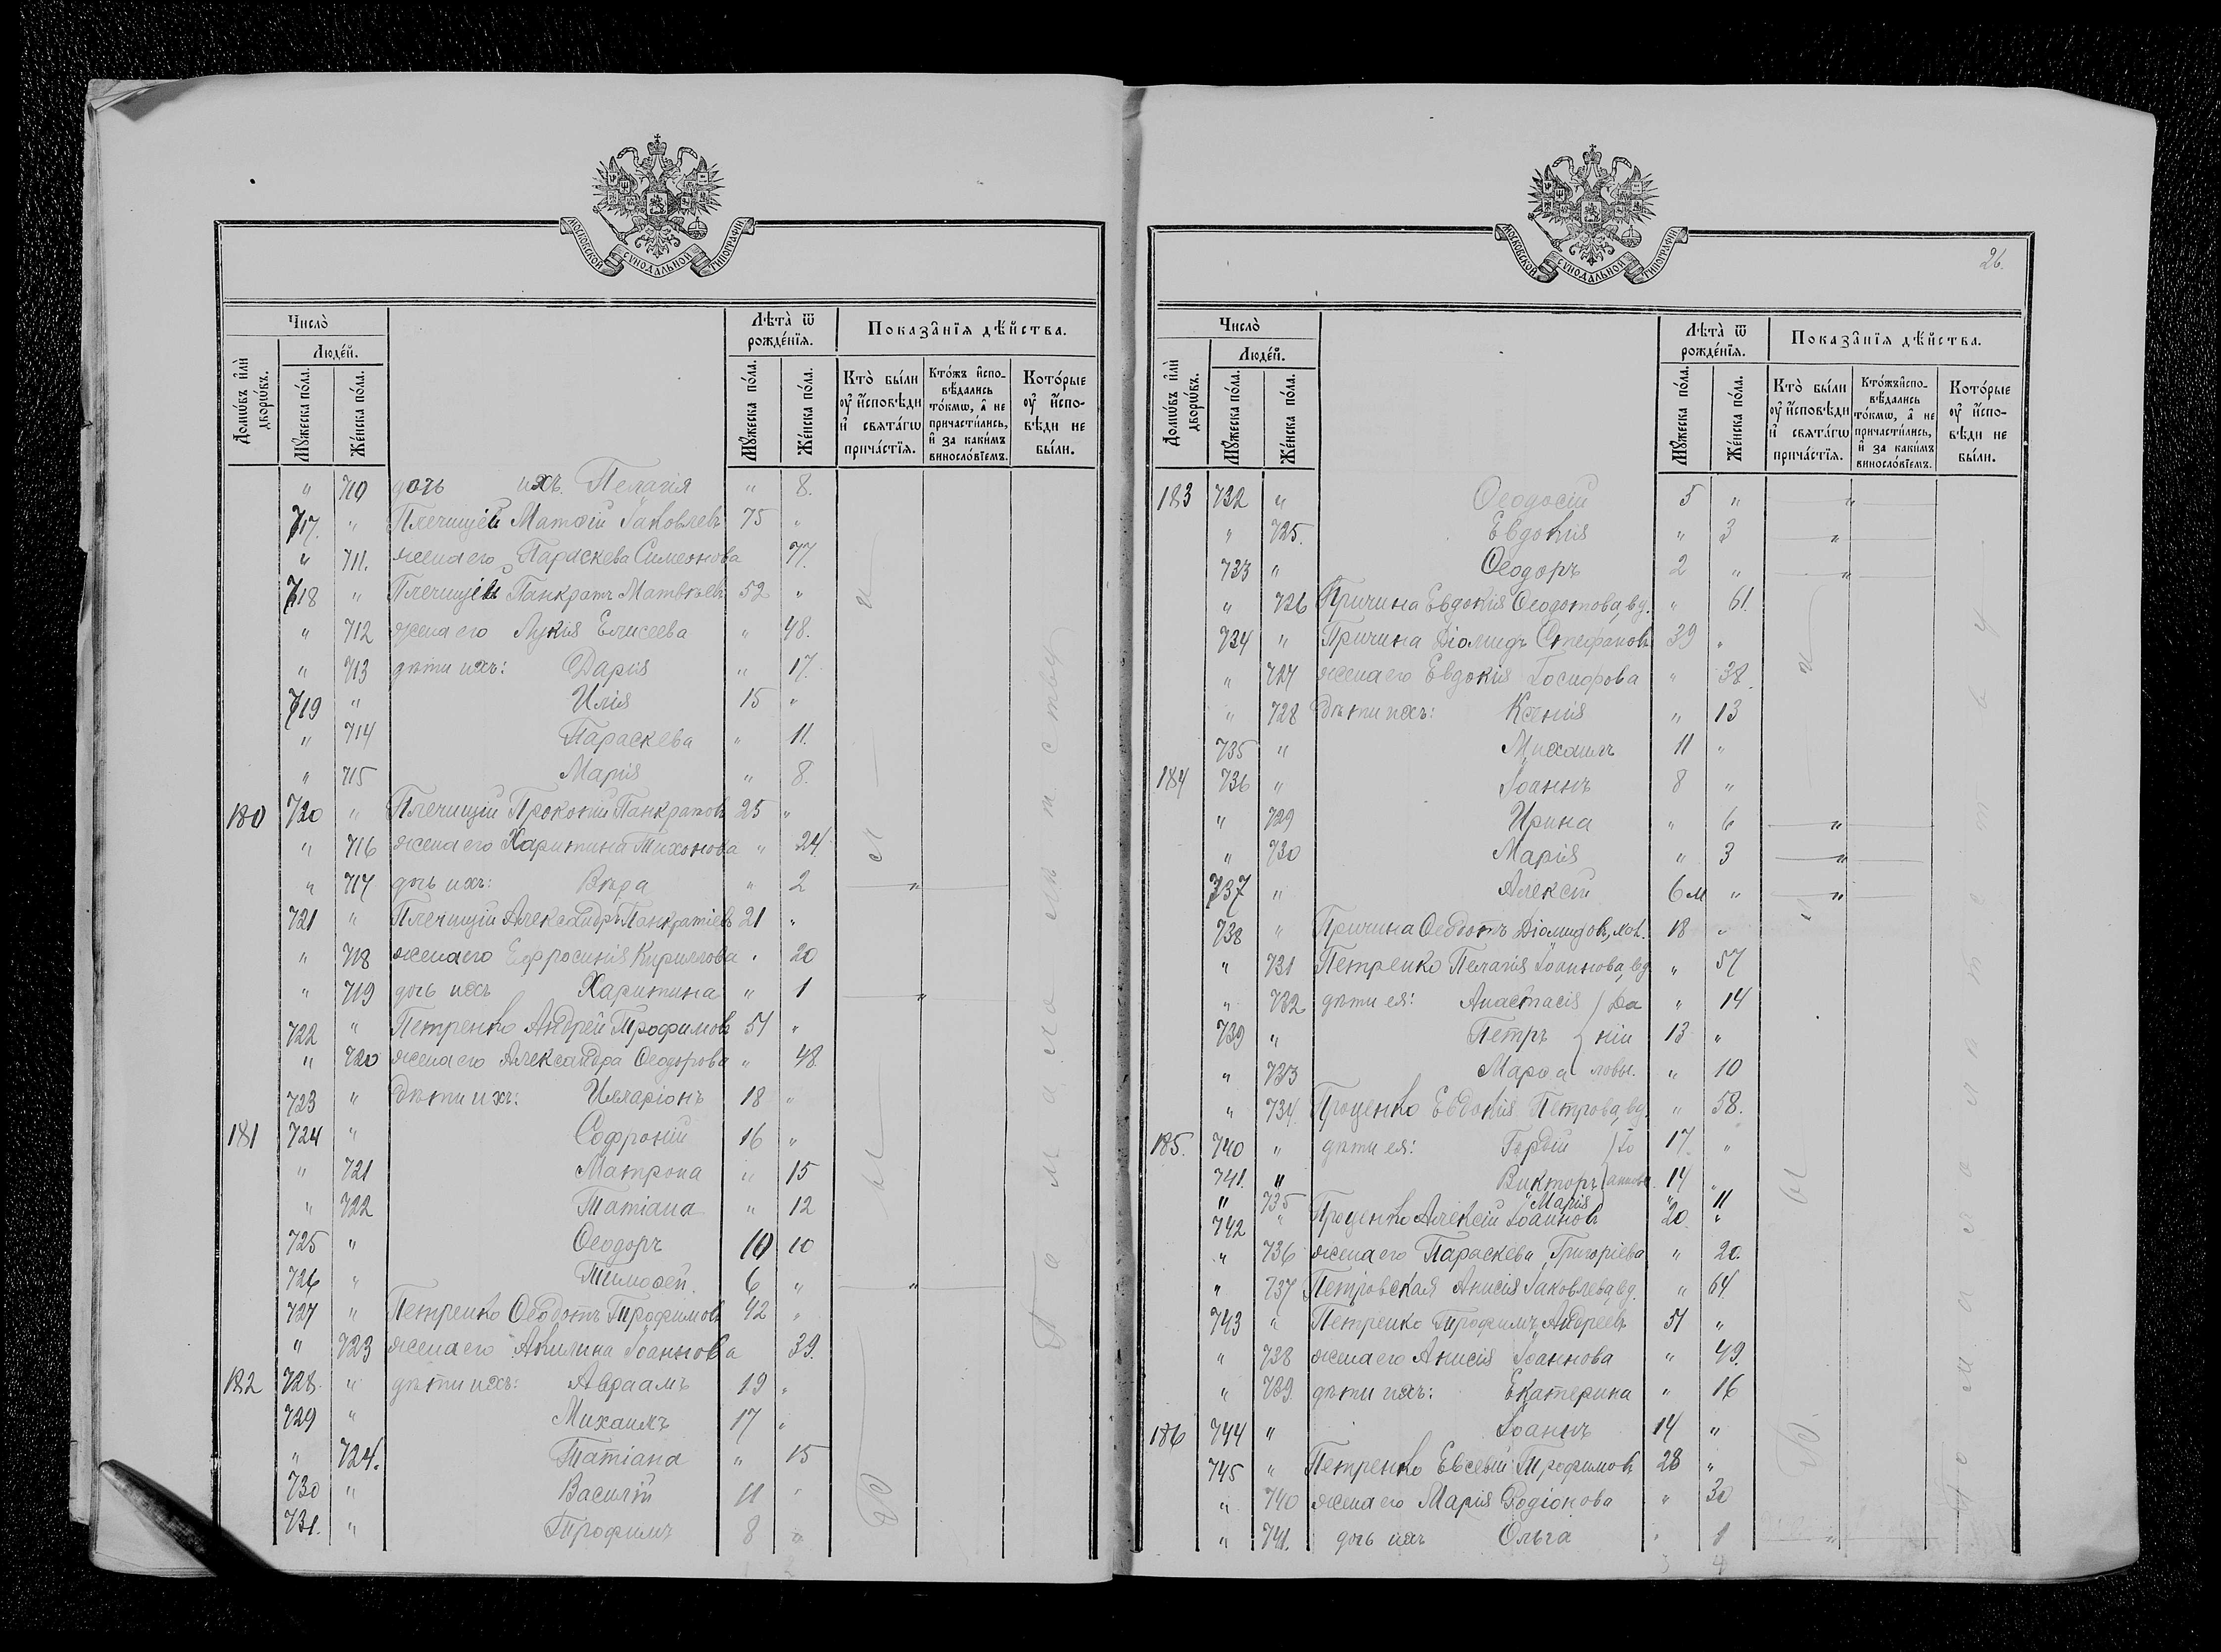 МОСКОВСКОЙ СѴНОДАЛЬНОЙ ТИПОГРАФІИ
Число̀
Людéй.
Домѡ́въ и҆лѝ дворѡ́въ.
Мꙋ́жеска по́ла.
Же́нска по́ла.
Лѣ́та ѿ рожде́нїѧ.
Мꙋ́жеска по́ла.
Же́нска по́ла.
Показа̑нїѧ дѣ́йства.
Кто̀ бы́ли оу҆ и҆́сповѣди и҆ свѧта́гѡ прича́стїѧ.
Кто́жъ и҆сповѣ́дались то́кмѡ, а҆ не причасти́лись, и҆ за каки́мъ винослóвїемъ.
Кото́рые оу҆ и҆́сповѣди не бы́ли.
" 710 дочь ихъ. Пелагія " 8.
717. " Плечищій Матѳій Іаковлевъ 75 "
" 711. жена его Параскева Симеонова 77.
718 " Плечищій Панкратъ Матвѣевъ 52 "
" 712 жена его Лукія Елисеева " 48.
" 713 дѣти ихъ: Дарія " 17.
719 " Илія 15 "
" 714 Параскева " 11.
" 715 Марія " 8.
180 720 " Плечищій Прокопій Панкратовъ 25 "
" 716 жена его Харитина Тихонова " 24.
" 717 дочь ихъ: Вѣра " 2 "
721 " Плечищій Александръ Панкратіевъ 21 "
" 718 жена его Ефросинія Кириллова " 20
" 719 дочь ихъ Харитина " 1 "
722 " Петренко Андрей Трофимовъ 51 "
" 720 жена его Александра Ѳеодорова " 48
723 " дѣти ихъ: Илларіонъ 18 "
181 724 " Софроній 16 "
" 721 Матрона " 15
" 722 Татіана " 12
725 " Ѳеодоръ 10 10
726 " Тимоѳей. 6 " "
727 " Петренко Ѳеодотъ Трофимовъ 42 "
" 723 жена его Акилина Іоаннова 39.
182 728. " дѣти ихъ: Авраамъ 19 "
729 " Михаилъ 17 "
" 724. Татіана " 15
730 " Василій 11 "
731. " Трофимъ 8 "
1 2
МОСКОВСКОЙ СѴНОДАЛЬНОЙ ТИПОГРАФІИ
26.
Число̀
Людéй.
Домѡ́въ и҆лѝ дворѡ́въ.
Мꙋ́жеска по́ла.
Же́нска по́ла.
Лѣ́та ѿ рожде́нїѧ.
Мꙋ́жеска по́ла.
Же́нска по́ла.
Показа̑нїѧ дѣ́йства.
Кто̀ бы́ли оу҆ и҆́сповѣди и҆ свѧта́гѡ прича́стїѧ.
Кто́жъ и҆сповѣ́дались то́кмѡ, а҆ не причасти́лись, и҆ за каки́мъ винослóвїемъ.
Кото́рые оу҆ и҆́сповѣди не бы́ли.
183 732 " Ѳеодосій 5 " "
" 725. Евдокія " 3 "
733 " Ѳеодоръ 2 " "
" 726 Причина Евдокія Ѳеодотова, вд. " 61.
734 " Причина Діомидъ Стефановъ 39 "
" 727 жена его Евдокія Іосифова " 38.
" 728 дѣти ихъ: Ксенія " 13
735 " Михаилъ 11 "
184 736 " Іоаннъ 8 "
" 729 Ирина " 6 "
" 730 Марія " 3 "
737 " Алексій 6 м " "
738 " Причина Ѳеодотъ Діомидовъ, хол. 18 "
" 731 Петренко Пелагія Іоаннова, вд. " 57
" 732 дѣти ея: Анастасія } Да " 14
739 " Петръ } ніи 13 "
" 733 Марѳа } ловы. " 10
" 734 Проценко Евдокія Петрова, вд. " 58.
185. 740 " дѣти ея: Гордій } Іо 17. "
741. " Викторъ } анновы. 14 "
" 735 Марія " 11
742 " Проценко Алексій Іоанновъ 20. "
" 736 жена его Параскева Григоріева " 20.
" 737 Петровская Анисія Іаковлева, вд. " 64
743 " Петренко Трофимъ Андреевъ 51 "
" 738 жена его Анисія Іоаннова " 49.
" 739 дѣти ихъ: Екатерина " 16
186 744 " Іоаннъ 14 "
745 " Петренко Евсевій Трофимовъ 28 "
" 740 жена его Марія Родіонова " 30
" 741. дочь ихъ Ольга " 1 "
3 4